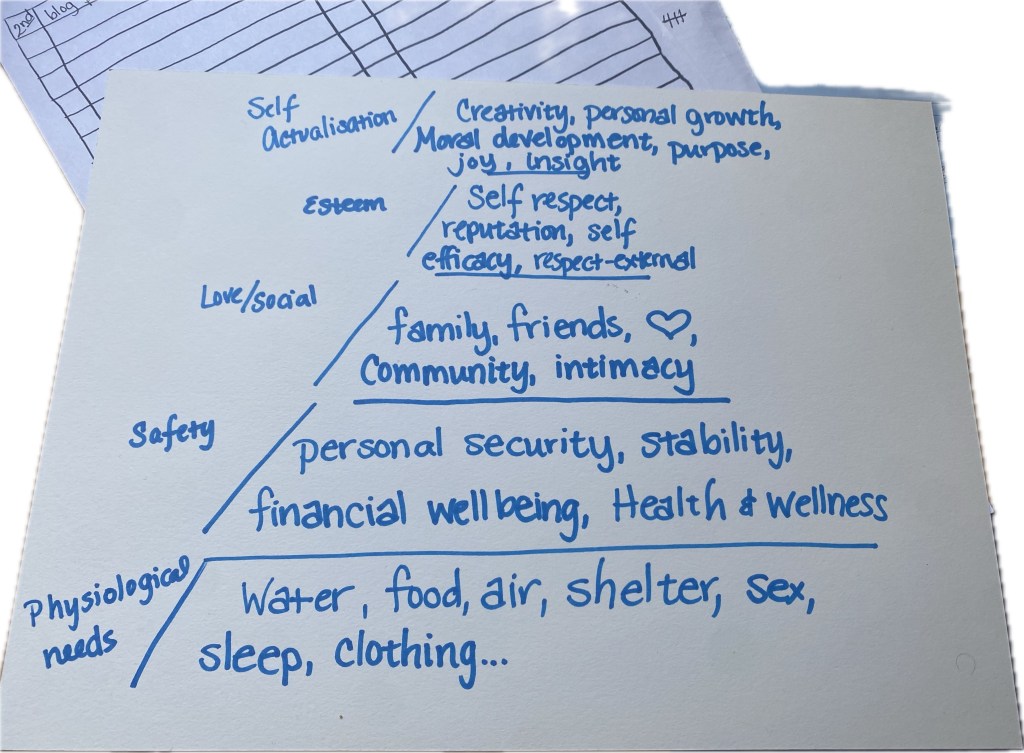 2nd blog
Self
Actualisation
Creativity, personal growth,
Moral development, purpose,
joy, insight
Esteem
Self respect,
reputation, self
efficacy, respect-external
Love/social
family, friends, ♡,
Community, intimacy
Safety
personal security, stability,
financial wellbeing, Health & Wellness
Physiological
needs
Water, food, air, shelter, sex,
sleep, clothing...